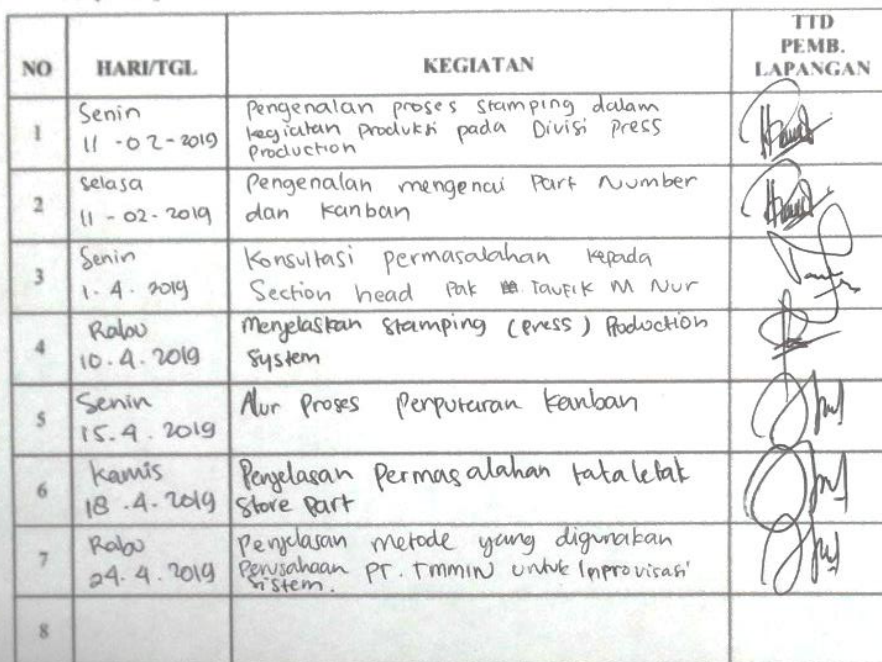 NO HARI/TGL KEGIATAN TTD PEMB. LAPANGAN
1
Senin
11 - 02 - 2019
Pengenalan proses stamping dalam
kegiatan Produksi pada Divisi Press
Production
2
Selasa
11 - 02 - 2019
Pengenalan mengenai Part Number
dan Kanban
3
Senin
1 - 4 . 2019
Konsultasi permasalahan kepada
Section head Pak Taufik M Nur
4
Rabu
10 . 4 . 2019
Menjelaskan Stamping (Press) Production
System
5
Senin
15 . 4 . 2019
Alur Proses Perputaran Kanban
6
Kamis
18 . 4 . 2019
Penjelasan Permasalahan tata letak
Store Part
7
Rabu
24 . 4 . 2019
Penjelasan metode yang digunakan
Perusahaan PT. TMMIN untuk Improvisasi
sistem.
8